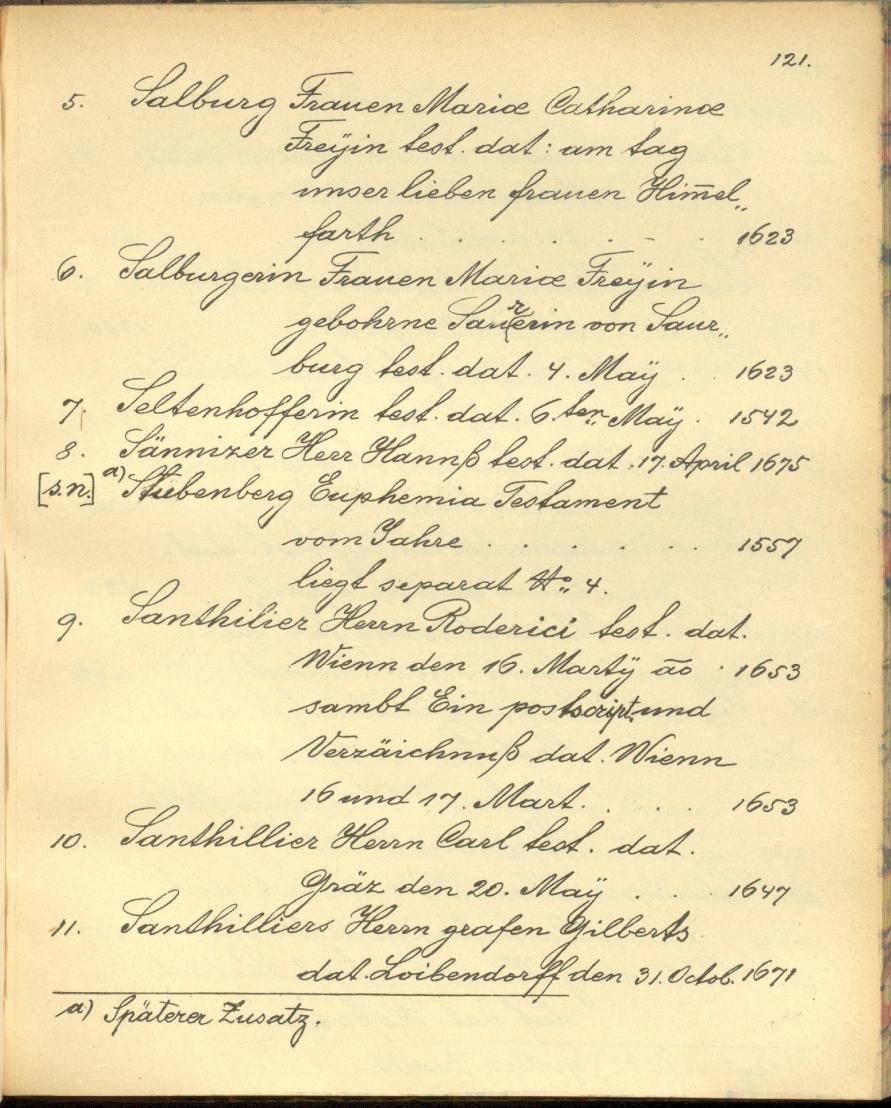 121.
5. Salburg Frauen Mariæ Catharinæ
Freÿin test. dat: am tag
unser lieben frauen Him̄el„
farth . . . . . 1623
6. Salburgerin Frauen Mariæ Freÿin
gebohrne Saurerin von Saur„
burg test. dat. 4. Maÿ . . 1623
7. Seltenhofferin test. dat. 6.ten Maÿ. 1542
8. Sännizer Herr Hannß test. dat. 17. April 1675
[s.n.] a) Stubenberg Euphemia Testament
vom Jahre . . . . . 1557
liegt separat No„ 4.
9. Santhilier Herrn Roderici test. dat.
Wienn den 16. Martÿ āo . 1653
sambt Ein postscript. und
Verzäichnuß dat. Wienn
16 und 17. Mart. . . . 1653
10. Santhillier Herrn Carl test. dat.
Gräz den 20. Maÿ . . . 1647
11. Santhilliers Herrn grafen Gilberts
dat. Loibendorff den 31. Octob. 1671
a) Späterer Zusatz.